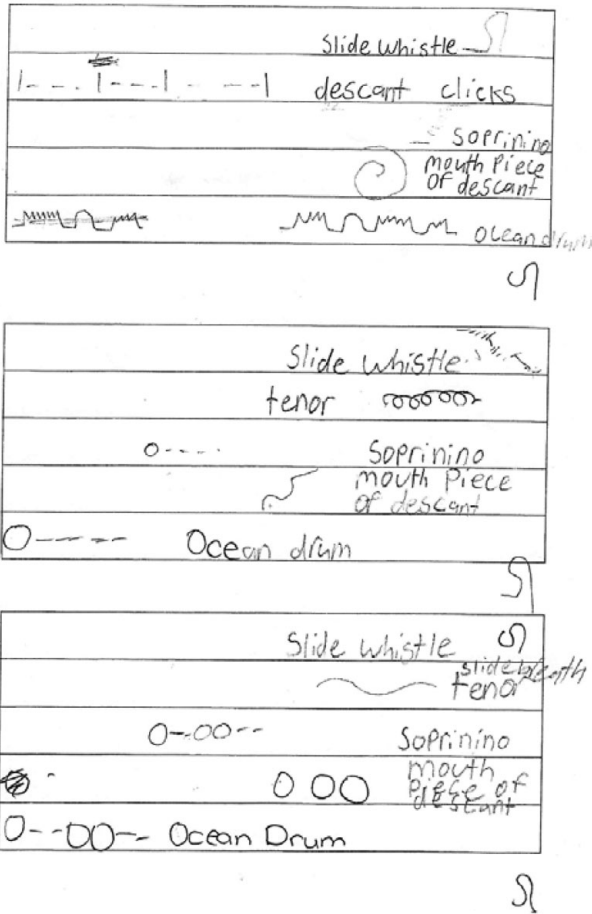 Slide whistle
descant clicks
Soprinino
mouth Piece
Of descant
Ocean drum
Slide whistle
tenor
Soprinino
mouth Piece
of descant
Ocean drum
Slide whistle
tenor
Soprinino
mouth
Piece of
descant
Ocean Drum